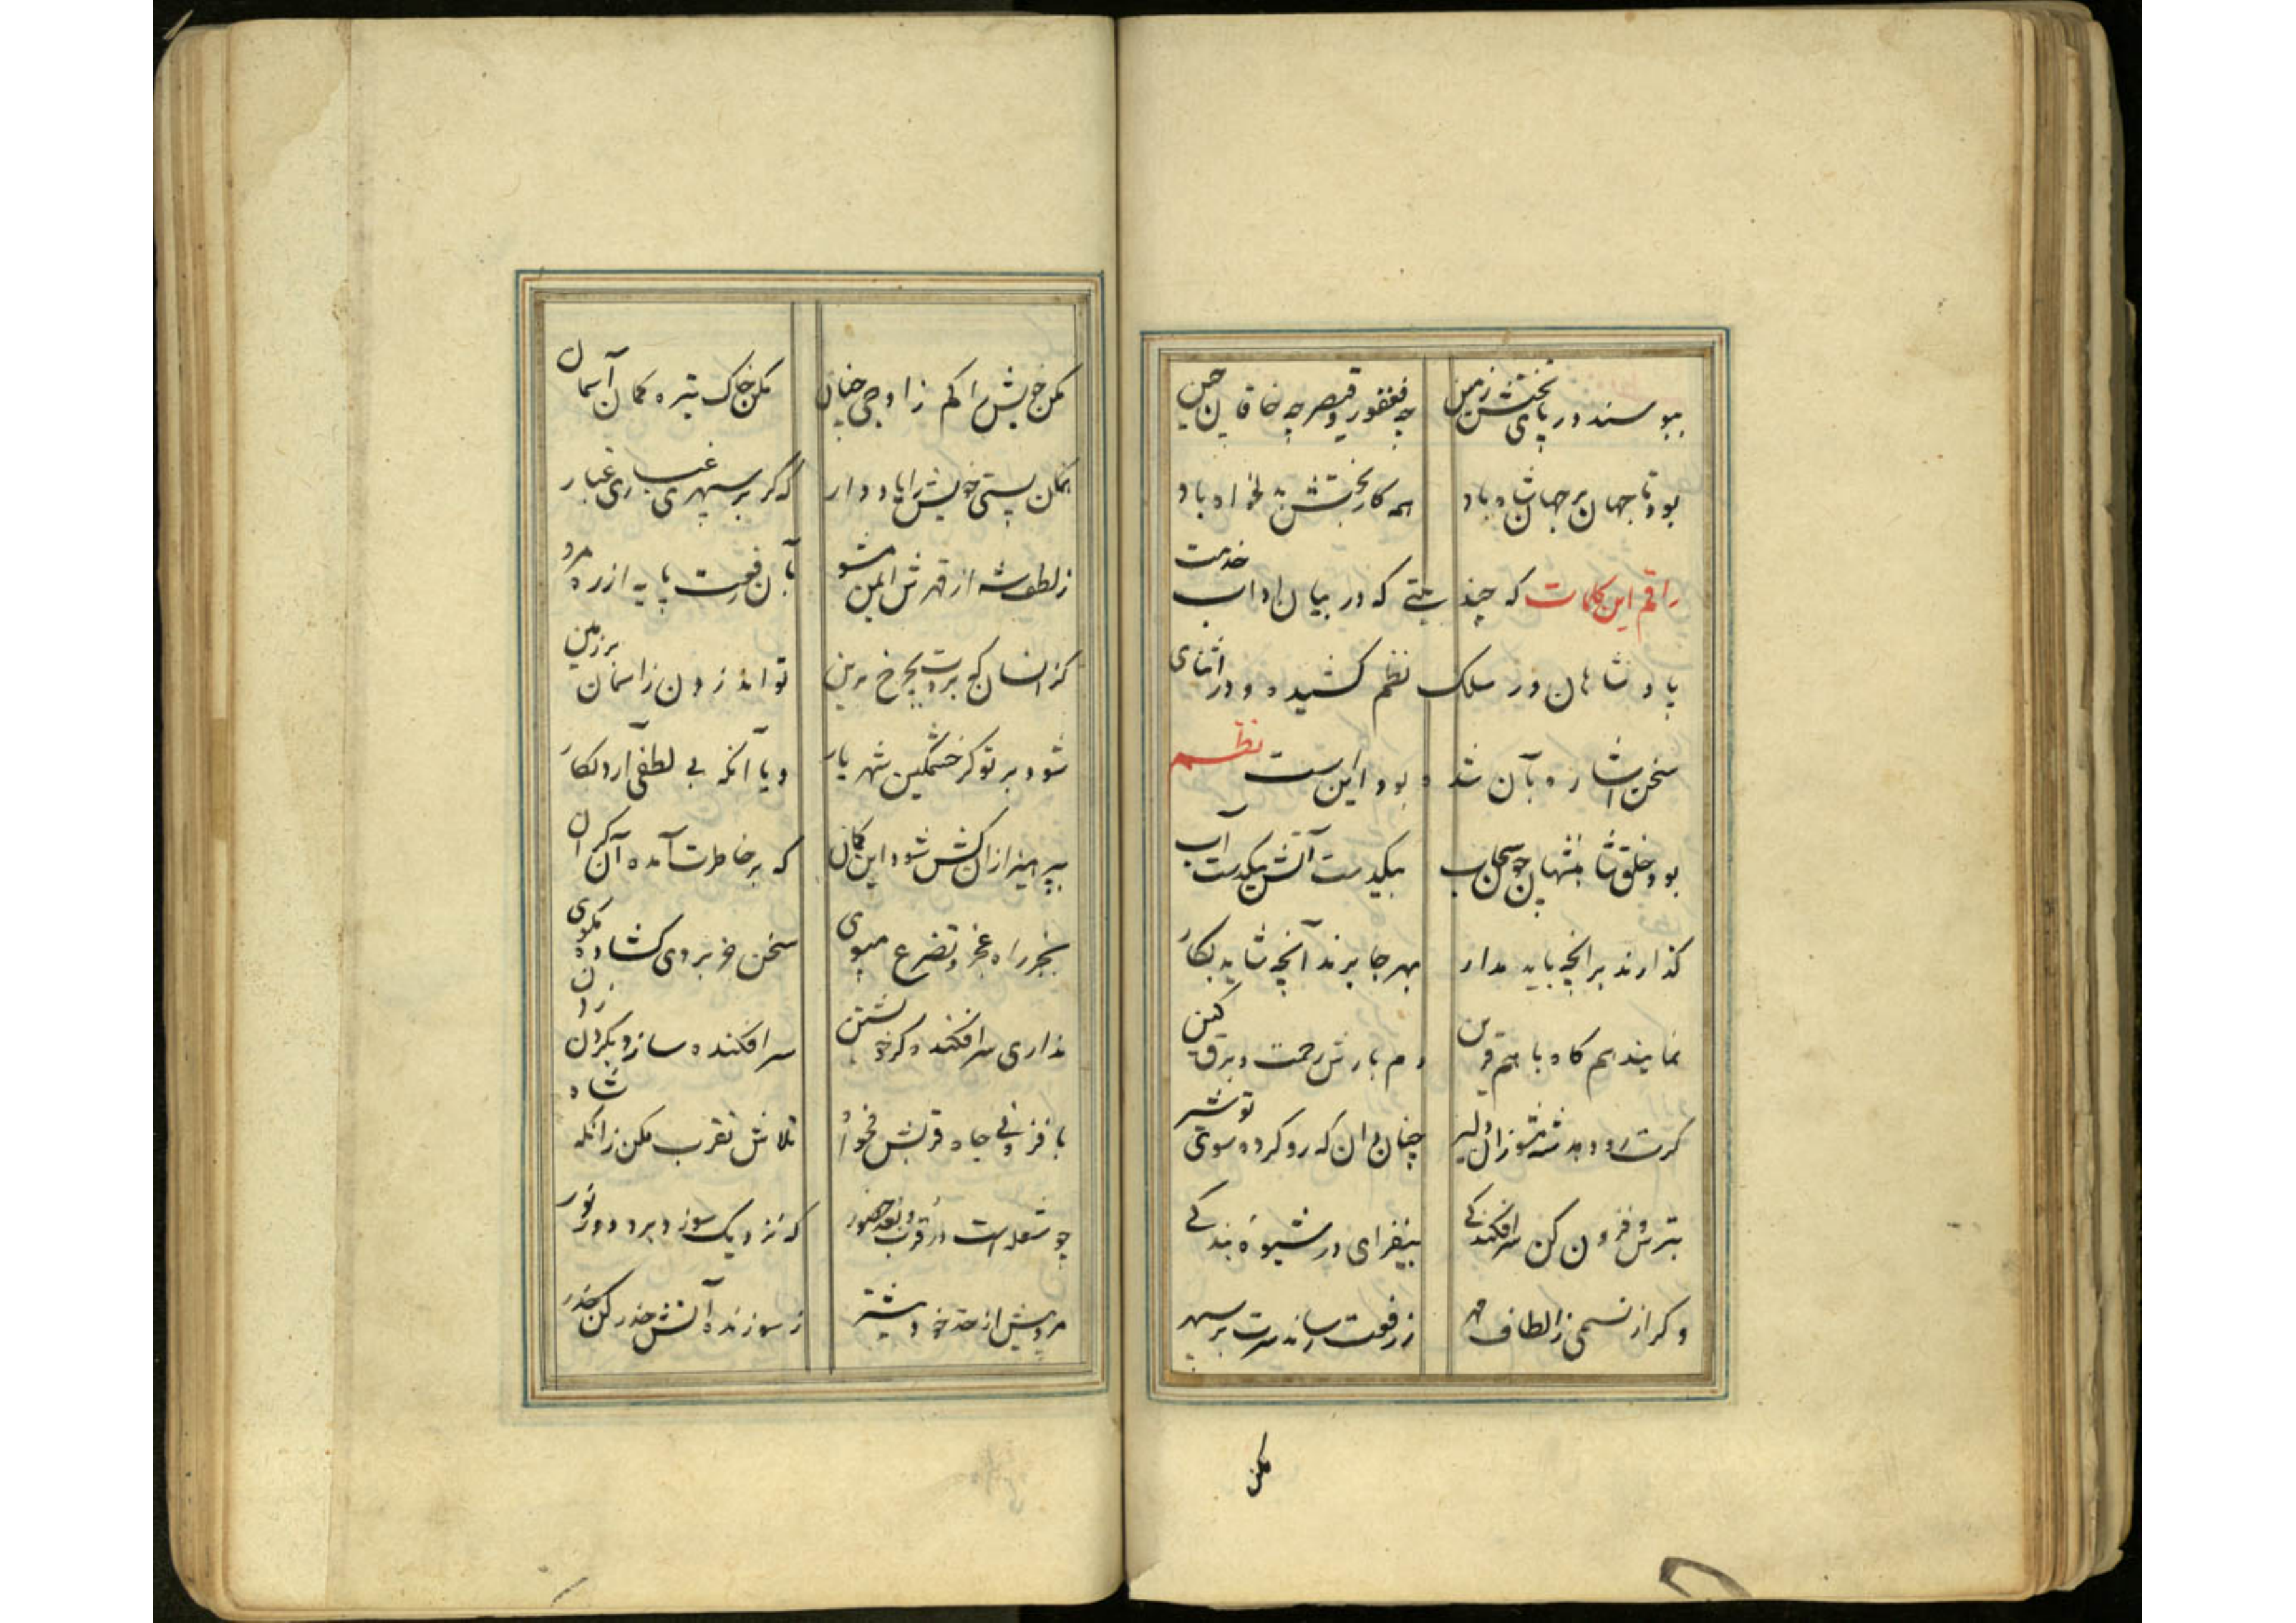 ببوسند در پای تختش زمین چه فغفور و قیصر چه خاقان چین
بود تا جهان بر جهان شاه باد همه کار بختش بدلخواه باد
راقم این کلمات که چند بیتی که در بیان اداب خدمت
پادشاهان در سلک نظم کشیده و در اثنای
سخن اشاره بآن شده بود اینست نظم
بود خلق شاهنشهان چون سحاب بیکدست آتش بیکدست آب
گذارند بر آنچه باید مدار بهر جا برند آنچه شاید بکار
نمایند هم گاه با هم قرین دم بارش رحمت و برق کین
گرت رو دهد شه مشو زان دلیر چنان دان که رو کرده سوی تو شیر
بترس و فزون کن سرافکندگی بیفزای در شیوهٔ بندگی
وگر از نسیمی ز الطاف مهر ز رفعت رساند سرت بر سپهر
مکن
مکن خویش را گم ز اوجی چنان مکن خاک تیره گمان آسمان
همان پستی خویش را یاد دار که گر بر سپهری غباری غبار
ز لطف شه از قهرش ایمن مشو بآن رفعت پایه از ره مرو
کز انسان که بردت بچرخ برین تواند زدن ز اسمان بر زمین
شود بر تو گر خشمگین شهریار و یا آنکه بی لطفی آرد بکار
بپرهیز ازان کش شود این گمان که بر خاطرت آمده آن گران
بجز راه عجز و تضرع مپوی سخن جز بروی گشاده مگوی
نداری سرافکنده گر خویشتن سرافکنده سازد بگردن زدن
بافزونی جاه قربش مخواه تلاش تقرب مکن زانکه شاه
چو شعله است در قرب و بعد حضور که نزدیک سوزد برد دور نور
مرو پیش از حد خود بیشتر ز سوزنده آتش حذر کن حذر